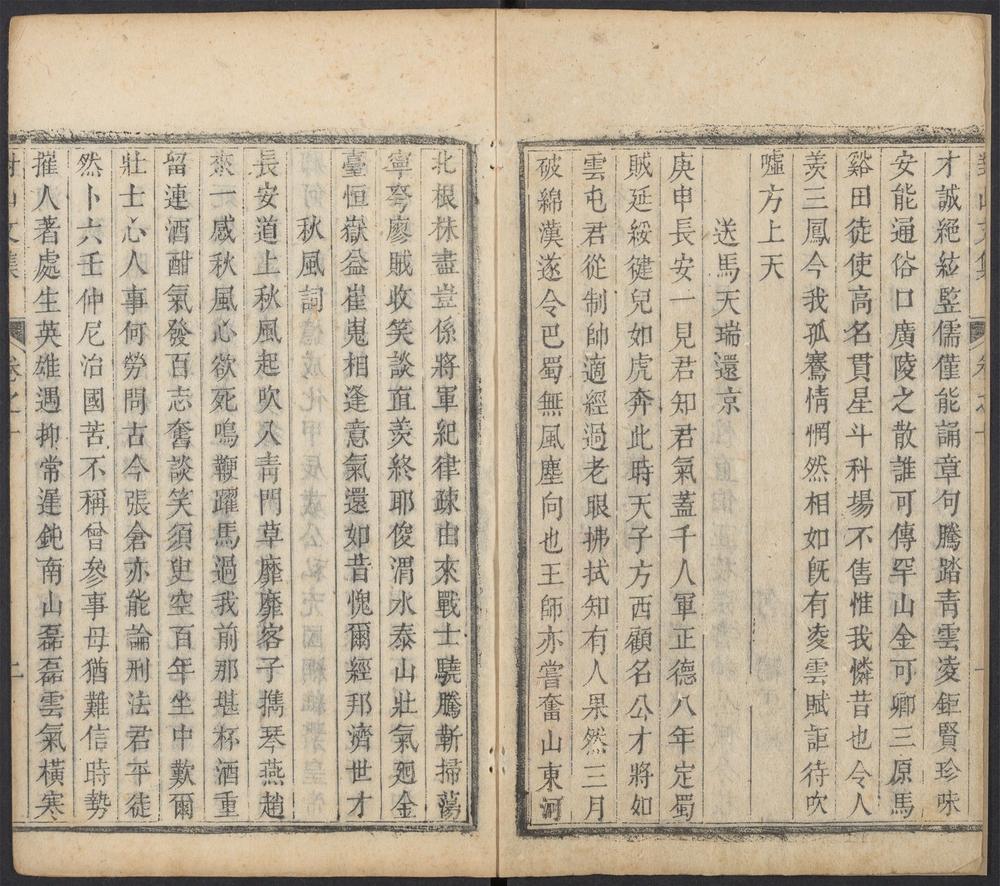 才誠絕竝監儒僅能誦章句騰踏青雲凌鉅賢珍味
安能通俗口廣陵之散誰可傳罕山金可卿三原馬
谿田徒使高名貫星斗科場不售惟我憐昔也令人
羨三鳳今我孤騫情惘然相如旣有凌雲賦詎待吹
噓方上天
送馬天瑞還京
庚申長安一見君知君氣蓋千人軍正德八年定蜀
賊延綏健兒如虎奔此時天子方西顧名公才將如
雲屯君從制帥適經過老眼拂拭知有人果然三月
破綿漢遂令巴蜀無風塵向也王師亦嘗奮山東河
北根株盡豈係將軍紀律疎由來戰士驍騰斬掃蕩
寧夸廖賊收笑談直羨終耶俊渭水泰山壯氣廻金
臺恒嶽益崔嵬相逢意氣還如昔愧爾經邦濟世才
秋風詞
長安道上秋風起吹入青門草靡靡客子携琴燕趙
來一感秋風心欲死鳴鞭躍馬過我前那堪杯酒重
留連酒酣氣發百志奮談笑須臾空百年坐中歎爾
壯士心人事何勞問古今張倉亦能論刑法君平徒
然卜六壬仲尼治國苦不稱曾參事母猶難信時勢
摧人著處生英雄遇抑常遲鈍南山磊磊雲氣橫寒
對山文集
卷之一